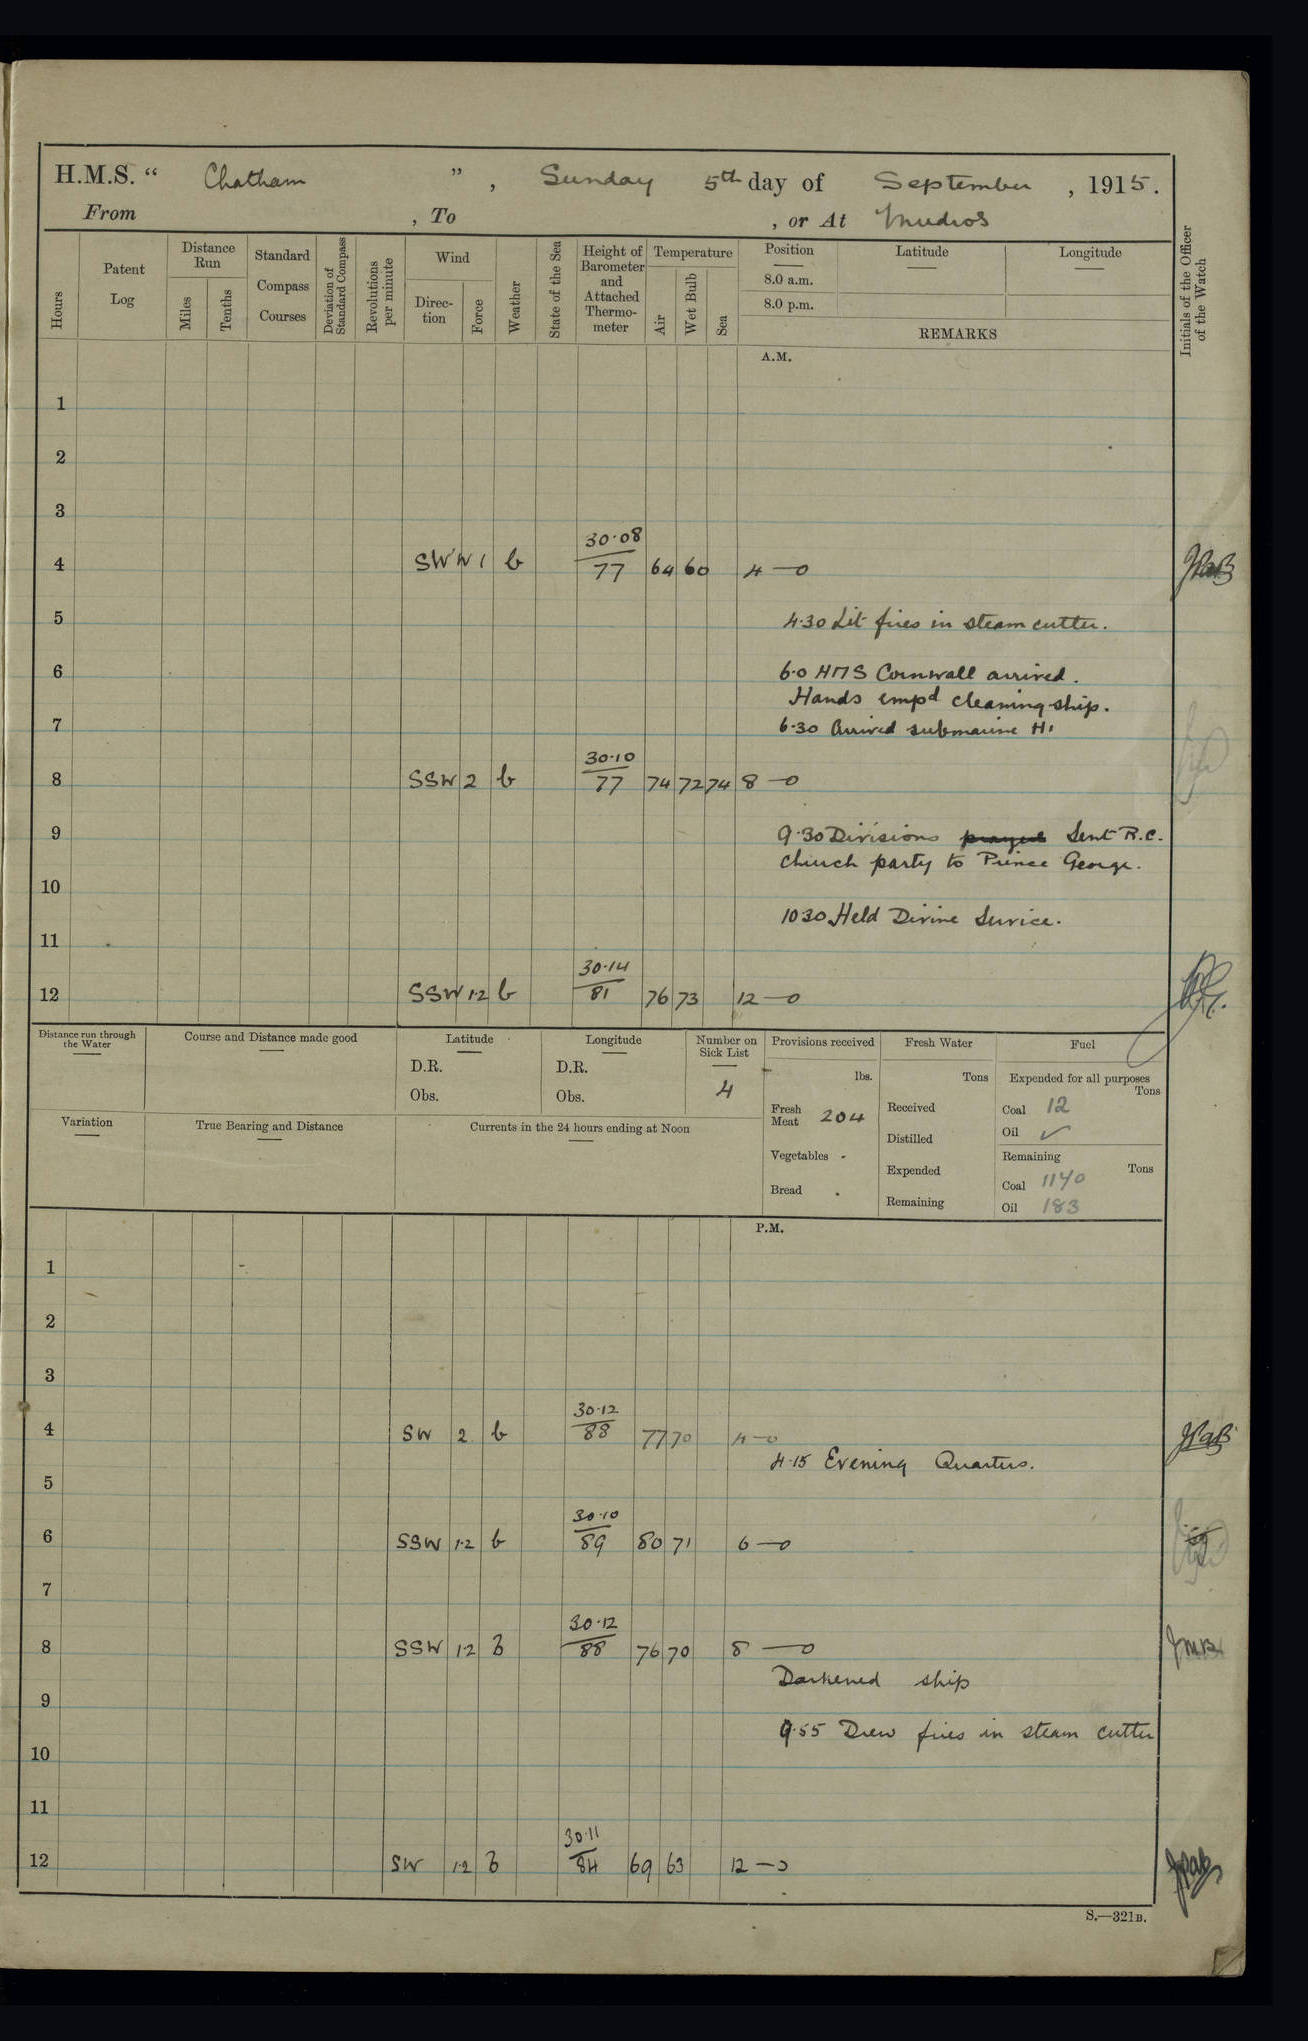 H.M.S. “ Chatham ” , Sunday 5th day of September , 1915.
From , To , or At Mudros
Hours
Patent Log
Distance Run
Miles
Tenths
Standard Compass Courses
Deviation of Standard Compass
Revolutions per minute
Wind
Direc-tion
Force
Weather
State of the Sea
Height of Barometer and Attached Thermo-meter
Temperature
Air
Wet Bulb
Sea
Position
8.0 a.m.
8.0 p.m.
Latitude
Longitude
REMARKS
Initials of the Officer of the Watch
A.M.
1
2
3
4 SW'W 1 b 30.08 77 64 60 4—0
5 4.30 Lit fires in steam cutter.
6 6.0 HMS Cornwall arrived.
Hands empd cleaning ship.
7 6.30 Arrived submarine H1
8 SSW 2 b 30.10 77 74 72 74 8—0
9 9.30 Divisions Sent R.C.
church party to Prince George.
10
1030 Held Divine Service.
11
12 SSW 1.2 b 30.14 81 76 73 12—0
Distance run through the Water
Course and Distance made good
Latitude
D.R.
Obs.
Longitude
D.R.
Obs.
Number on Sick List
4
Provisions received
lbs.
Fresh Meat 204
Vegetables -
Bread .
Fresh Water
Tons
Received
Distilled
Expended
Remaining
Fuel
Expended for all purposes
Tons
Coal 12
Oil ✓
Remaining
Tons
Coal 1140
Oil 183
Variation
True Bearing and Distance
Currents in the 24 hours ending at Noon
P.M.
1
2
3
4 SW 2 b 30.12 88 77 70 4—0
4.15 Evening Quarters.
5
6 SSW 1.2 b 30.10 89 80 71 6—0
7
8 SSW 1.2 b 30.12 88 76 70 8—0
Darkened ship
9
9.55 Drew fires in steam cutter
10
11
12 SW 1.2 b 30.11 84 69 63 12—0
S.—321B.